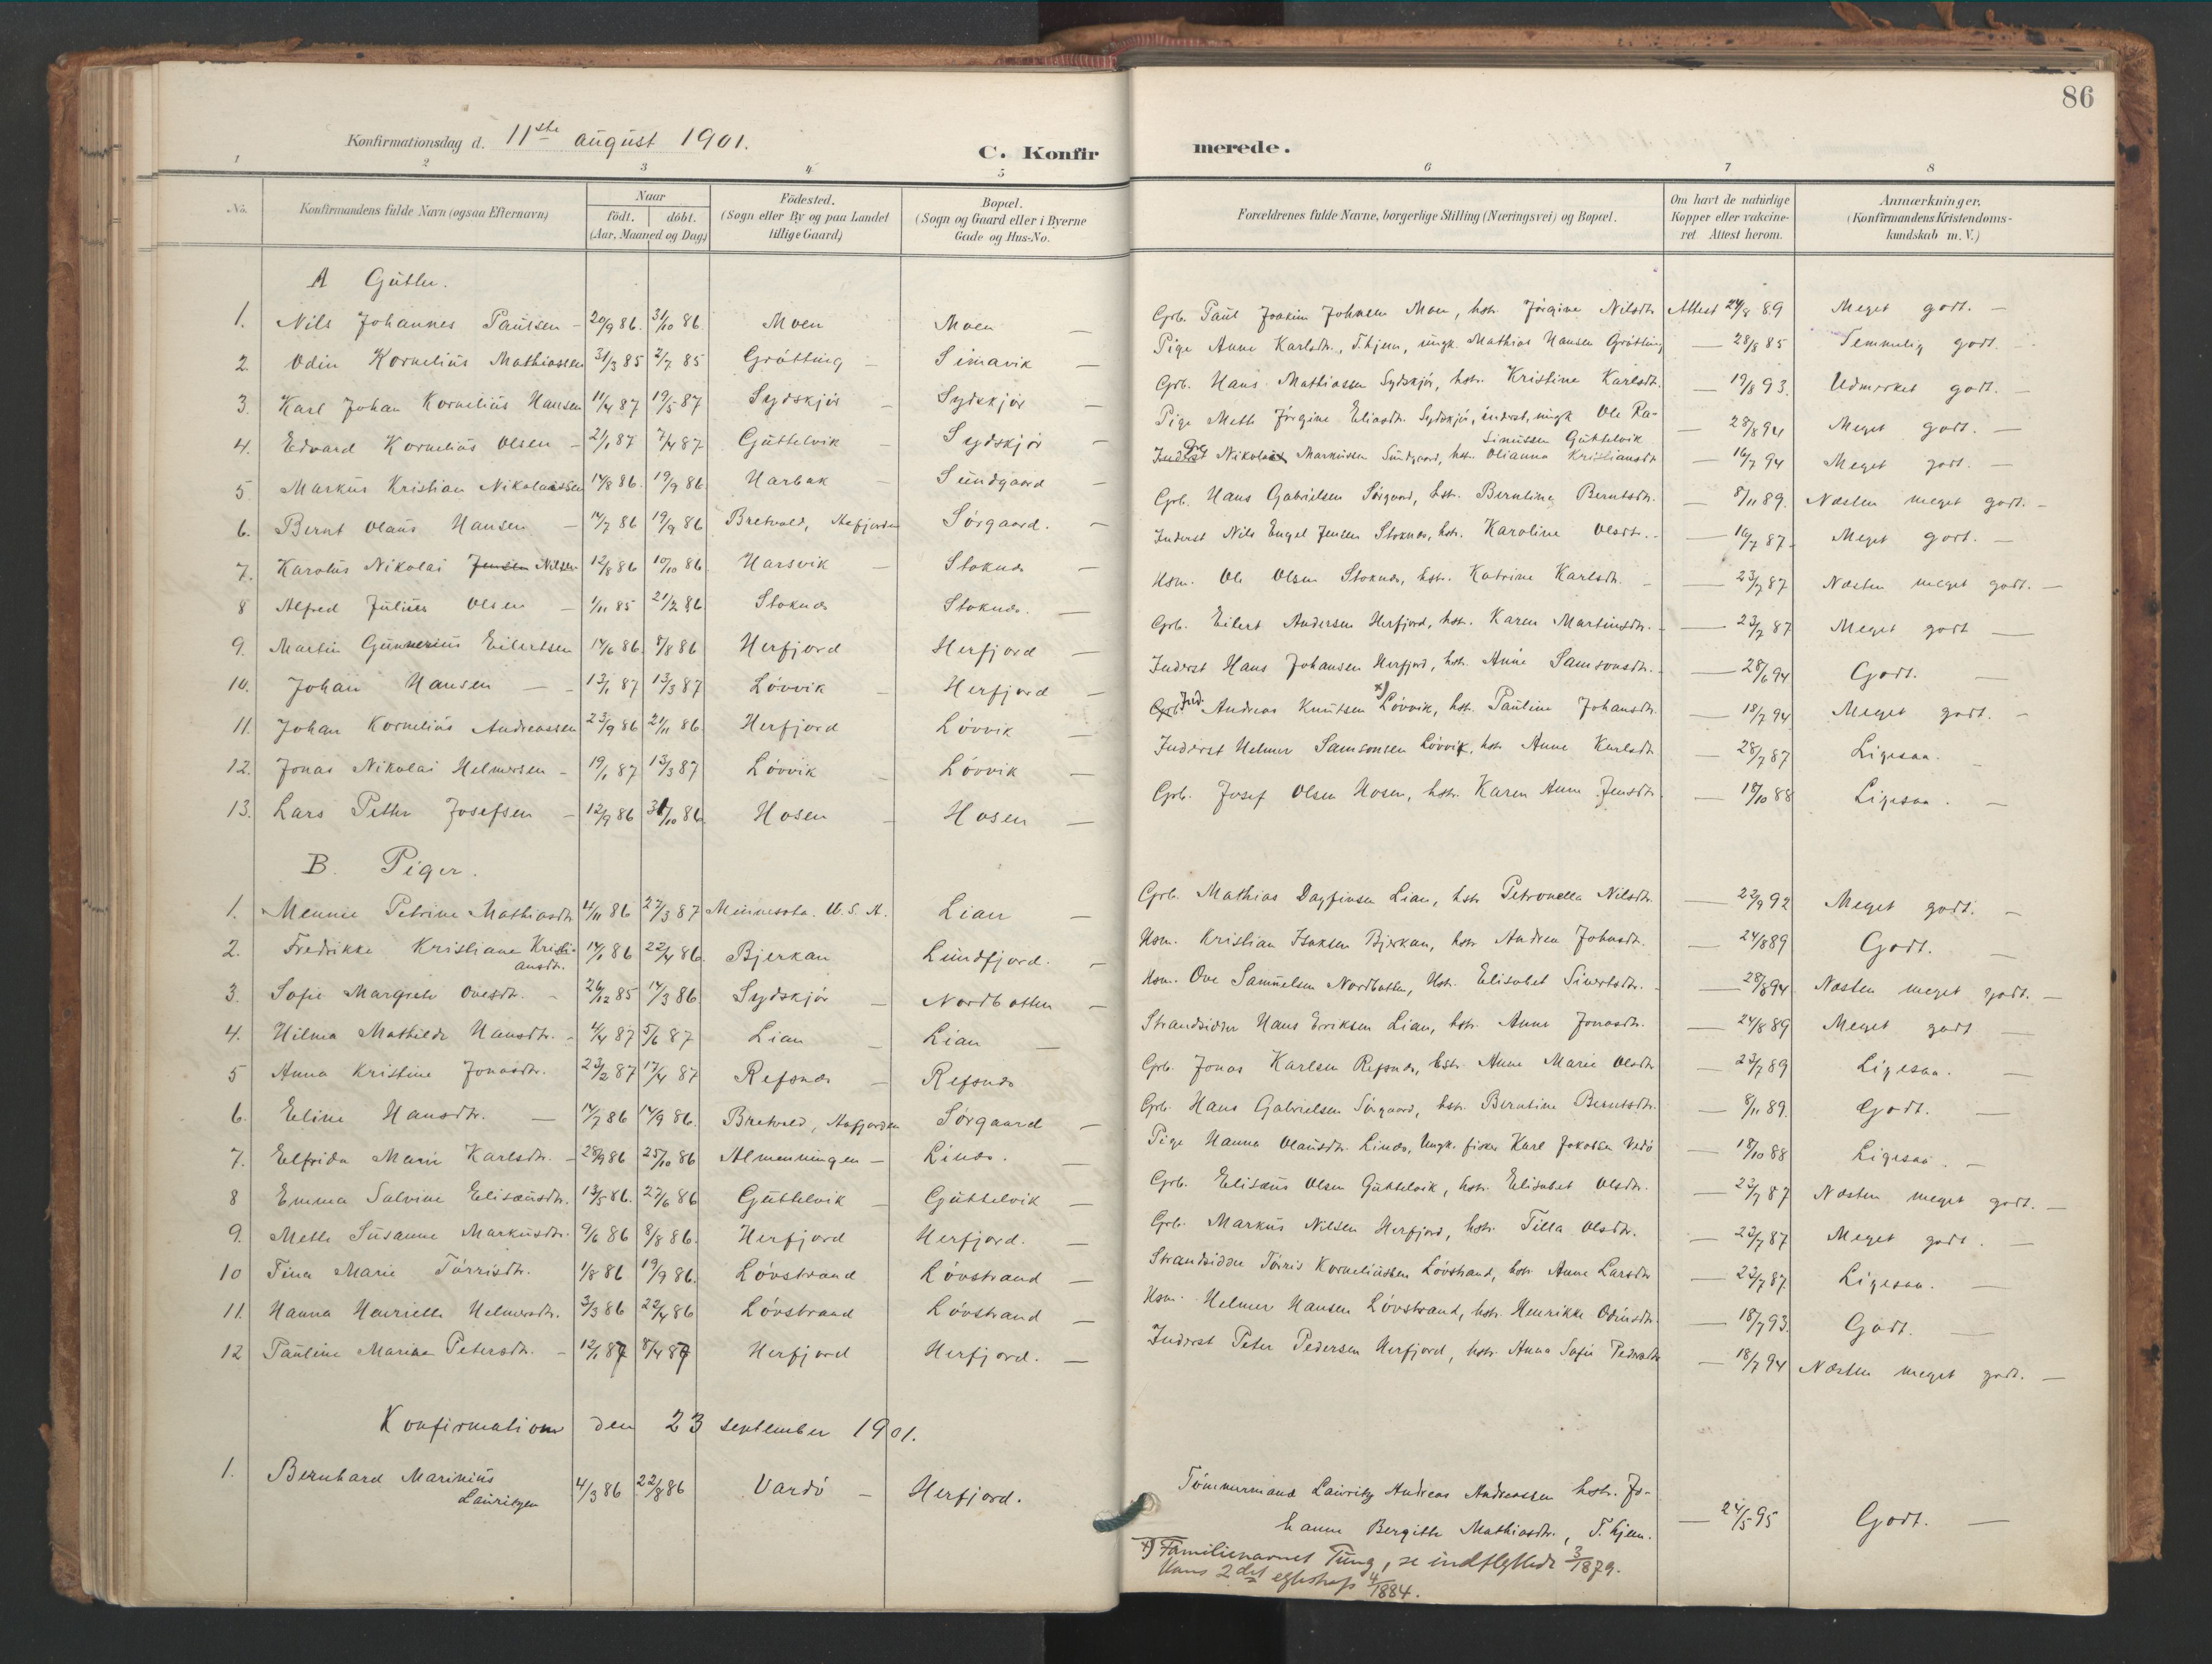 86
Konfirmationsdag d. 11ste august 1901.
C. Konfirmerede.
1 2 3 4 5 6 7 8
No. | Konfirmandens fulde Navn (ogsaa Efternavn) | Naar födt. | döbt. (Aar, Maaned og Dag) | Födested. (Sogn eller By og paa Landet tillige Gaard) | Bopæl. (Sogn og Gaard eller i Byerne Gade og Hus-No. | Forældrenes fulde Navne, borgerlige Stilling (Næringsvei) og Bopæl. | Om havt de natürlige Kopper eller vakcineret Attest herom. | Anmærkninger. (Konfirmandens Kristendomskundskab m.V.)
A Gutter.
1. Nils Johannes Paulsen - 20/9 86. 31/10 86. Moen Moen — Grb. Paul Joakim Johnsen Moen, hstr. Jörgine Nilsdtr. Attest 24/8 89 Meget godt. —
2. Odin Kornelius Mathiassen 31/3 85 2/7 85 Gråtting - Simavik — Pige Anne Karlsdtr., T.hjem, ungk. Mathias Hansen Gråtting — 28/8 85 Temmelig godt.
3. Karl Johan Kornelius Hansen 11/4 87 19/5 87 Sydskjör - Sydskjör — Grb. Hans Mathiassen Sydskjör, hstr. Kristine Karlsdtr. — 19/8 93. Udmerket godt. —
4. Edvard Kornelius Olsen - 21/1 87 7/4 87 Guttelvik - Sydskjör — Pige Meth Jörgine Eliasdtr. Sydskjör, inderst, ungk. Ole Rasmussen Guttelvik — 28/8 94 Meget godt. —
5 Markus Kristian Nikolaissen 14/8 86. 19/9 86. Harbak - Sundgaard — Inderst Nikolai Markussen Sundgaard, hstr. Olianna Kristiansdtr — 16/7 94 Meget godt. —
6. Bernt Olaus Hansen - 14/7 86 19/9 86 Bretvold, Aafjorden Sörgaard. — Grb. Hans Gabrielsen Sörgaard, hstr. Berntine Berntsdtr. — 8/11 89. Næsten meget godt. —
7. Karolus Nikolai Jensen Nilsen 12/8 86 10/10 86 Harsvik — Stoknes — Inderst Nils Engel Jensen Stoknes, hstr. Karoline Olsdtr. — 16/7 87. Meget godt. —
8 Alfred Julius Olsen — 1/11 85 21/2 86 Stoknes Stoknes. — Hsm. Ole Olsen Stoknes, hstr. Katrine Karlsdtr. — 23/7 87 Næsten meget godt. —
9. Martin Gunnerius Eilertsen 14/6 86 8/8 86 Herfjord Herfjord — Grb. Eilert Andersen Herfjord, hstr. Karen Martinsdtr. — 23/7 87 Meget godt —
10. Johan Hansen — 13/1 87 13/3 87 Lövvik - Herfjord — Inderst Hans Johansen Herfjord, hstr. Anne Samsonsdtr. — 28/6 94 Godt. —
11. Johan Kornelius Andreassen 23/9 86 21/11 86. Herfjord Lövvik — Grb. Ind. Andreas Knutsen x) Lövvik, hstr. Pauline Johansdtr. — 18/7 94 Meget godt. -
12. Jonas Nikolai Helmersen - 19/1 87 13/3 87 Lövvik - Lövvik — Inderst Helmer Samsonsen Lövvik, hstr. Anne Karlsdtr. — 28/7 87 Ligesaa. -
13. Lars Petter Josefsen — 12/9 86 31/10 86. Hosen - Hosen — Grb. Josef Olsen Hosen, hstr. Karen Anne Jensdtr. — 18/10 88 Ligesaa. —
B. Piger.
1. Mennie Petrine Mathiasdtr 4/11 86 27/3 87 Minnesota. U.S.A. Lian — Grb. Mathias Dagfinsen Lian, hstr Petronella Nilsdtr. — 22/9 92 Meget godt. —
2. Fredrikke Kristiane Kristiansdtr. 14/1 86 22/4 86. Bjerkan Lundfjord. — Hsm. Kristian Isaksen Bjerkan, hstr Andrea Johnsdtr. — 24/8 89 Godt. —
3. Sofie Margrete Ovesdtr. - 26/12 85 14/3 86 Sydskjör — Nordbotten — Hsm. Ove Samuelsen Nordbotten, Hstr. Elisabet Sivertsdtr. — 28/8 94 Næsten meget godt. —
4. Hilma Mathilde Hansdtr. - 4/4 87 5/6 87 Lian - Lian — Strandsidder Hans Eriksen Lian, hstr. Anne Jonasdtr. — 24/8 89 Meget godt —
5 Anna Kristine Jonasdtr. 23/2 87 17/4 87 Refsnes — Refsnes Grb. Jonas Karlsen Refsnes, hstr. Anne Marie Olsdtr — 23/7 89 Ligesaa. —
6. Eline Hansdtr. — 14/7 86 19/9 86. Bretvold, Aafjorden Sörgaard — Grb. Hans Gabrielsen Sörgaard, hstr. Berntine Berntsdtr. — 8/11 89. Godt. —
7. Elfrida Marie Karlsdtr. - 28/9 86 25/10 86 Almenningen — Lines. — Pige Hanna Olausdtr. Lines, Ungk. fisker Karl Jakobsen — 18/10 88 Ligesaa. —
8 Emma Salvine Elisæusdtr. 13/5 86. 27/6 86 Guttelvik — Guttelvik — Grb. Elisæus Olsen Guttelvik, hstr. Elisabet Olsdtr. — 23/7 87 Næsten meget godt. —
9. Mette Susanne Markusdtr. 9/6 86 8/8 86. Herfjord Herfjord. — Grb. Markus Nilsen Herfjord, hstr. Tilla Olsdtr. — 23/7 87 Meget godt. —
10 Tina Marie Törrisdtr. 1/8 86 19/9 86. Lövstrand Lövstrand — Strandsidder Törris Korneliussen Lövstrand, hstr Anne Larsdtr — 23/7 87. Ligesaa. —
11. Hanna Henriette Helmersdtr. 3/3 86 22/4 86 Lövstrand Lövstrand — Hsm. Helmer Hansen Lövstrand, hstr. Henrikke Odinsdtr. — 18/7 93. Godt. —
12 Pauline Marine Petersdtr. - 12/1 87 8/4 87 Herfjord Herfjord. — Inderst Peter Pedersen Herfjord, hstr. Anna Sofie Pedersdtr — 18/7 94 Næsten meget godt. —
Konfirmation den 23 september 1901.
1. Bernhard Marinius Lauritzen 4/3 86 22/8 86 Vardö — Herfjord. Tömmermand Lauritz Andreas Andreassen hstr. Johanne Bergitte Mathiasdtr., T.hjem. — 24/5 95 Godt. —
x) Familienavnet Tung, se indflyttede 3/1879.
Hans 2det egteskap 4/1884.